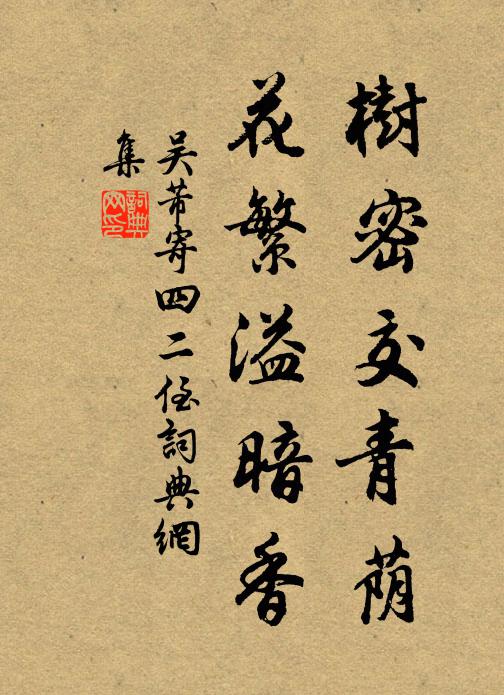 樹密交青荫
花繁溢暗香
吴芾寄四二侄詞典網
集
詞典网印